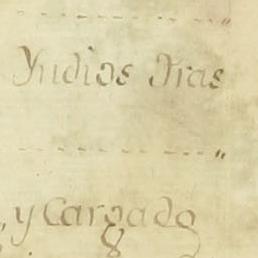 Yndios Tras
y Cargado